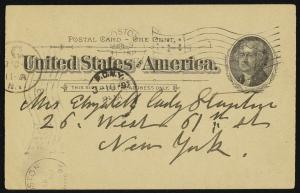 POSTAL CARD - ONE CENT.
United States of America.
THIS SIDE
ADDRESS
P.O.N.Y.
Mrs Elizabeth Cady Stanton
26. West 61st st
New York.